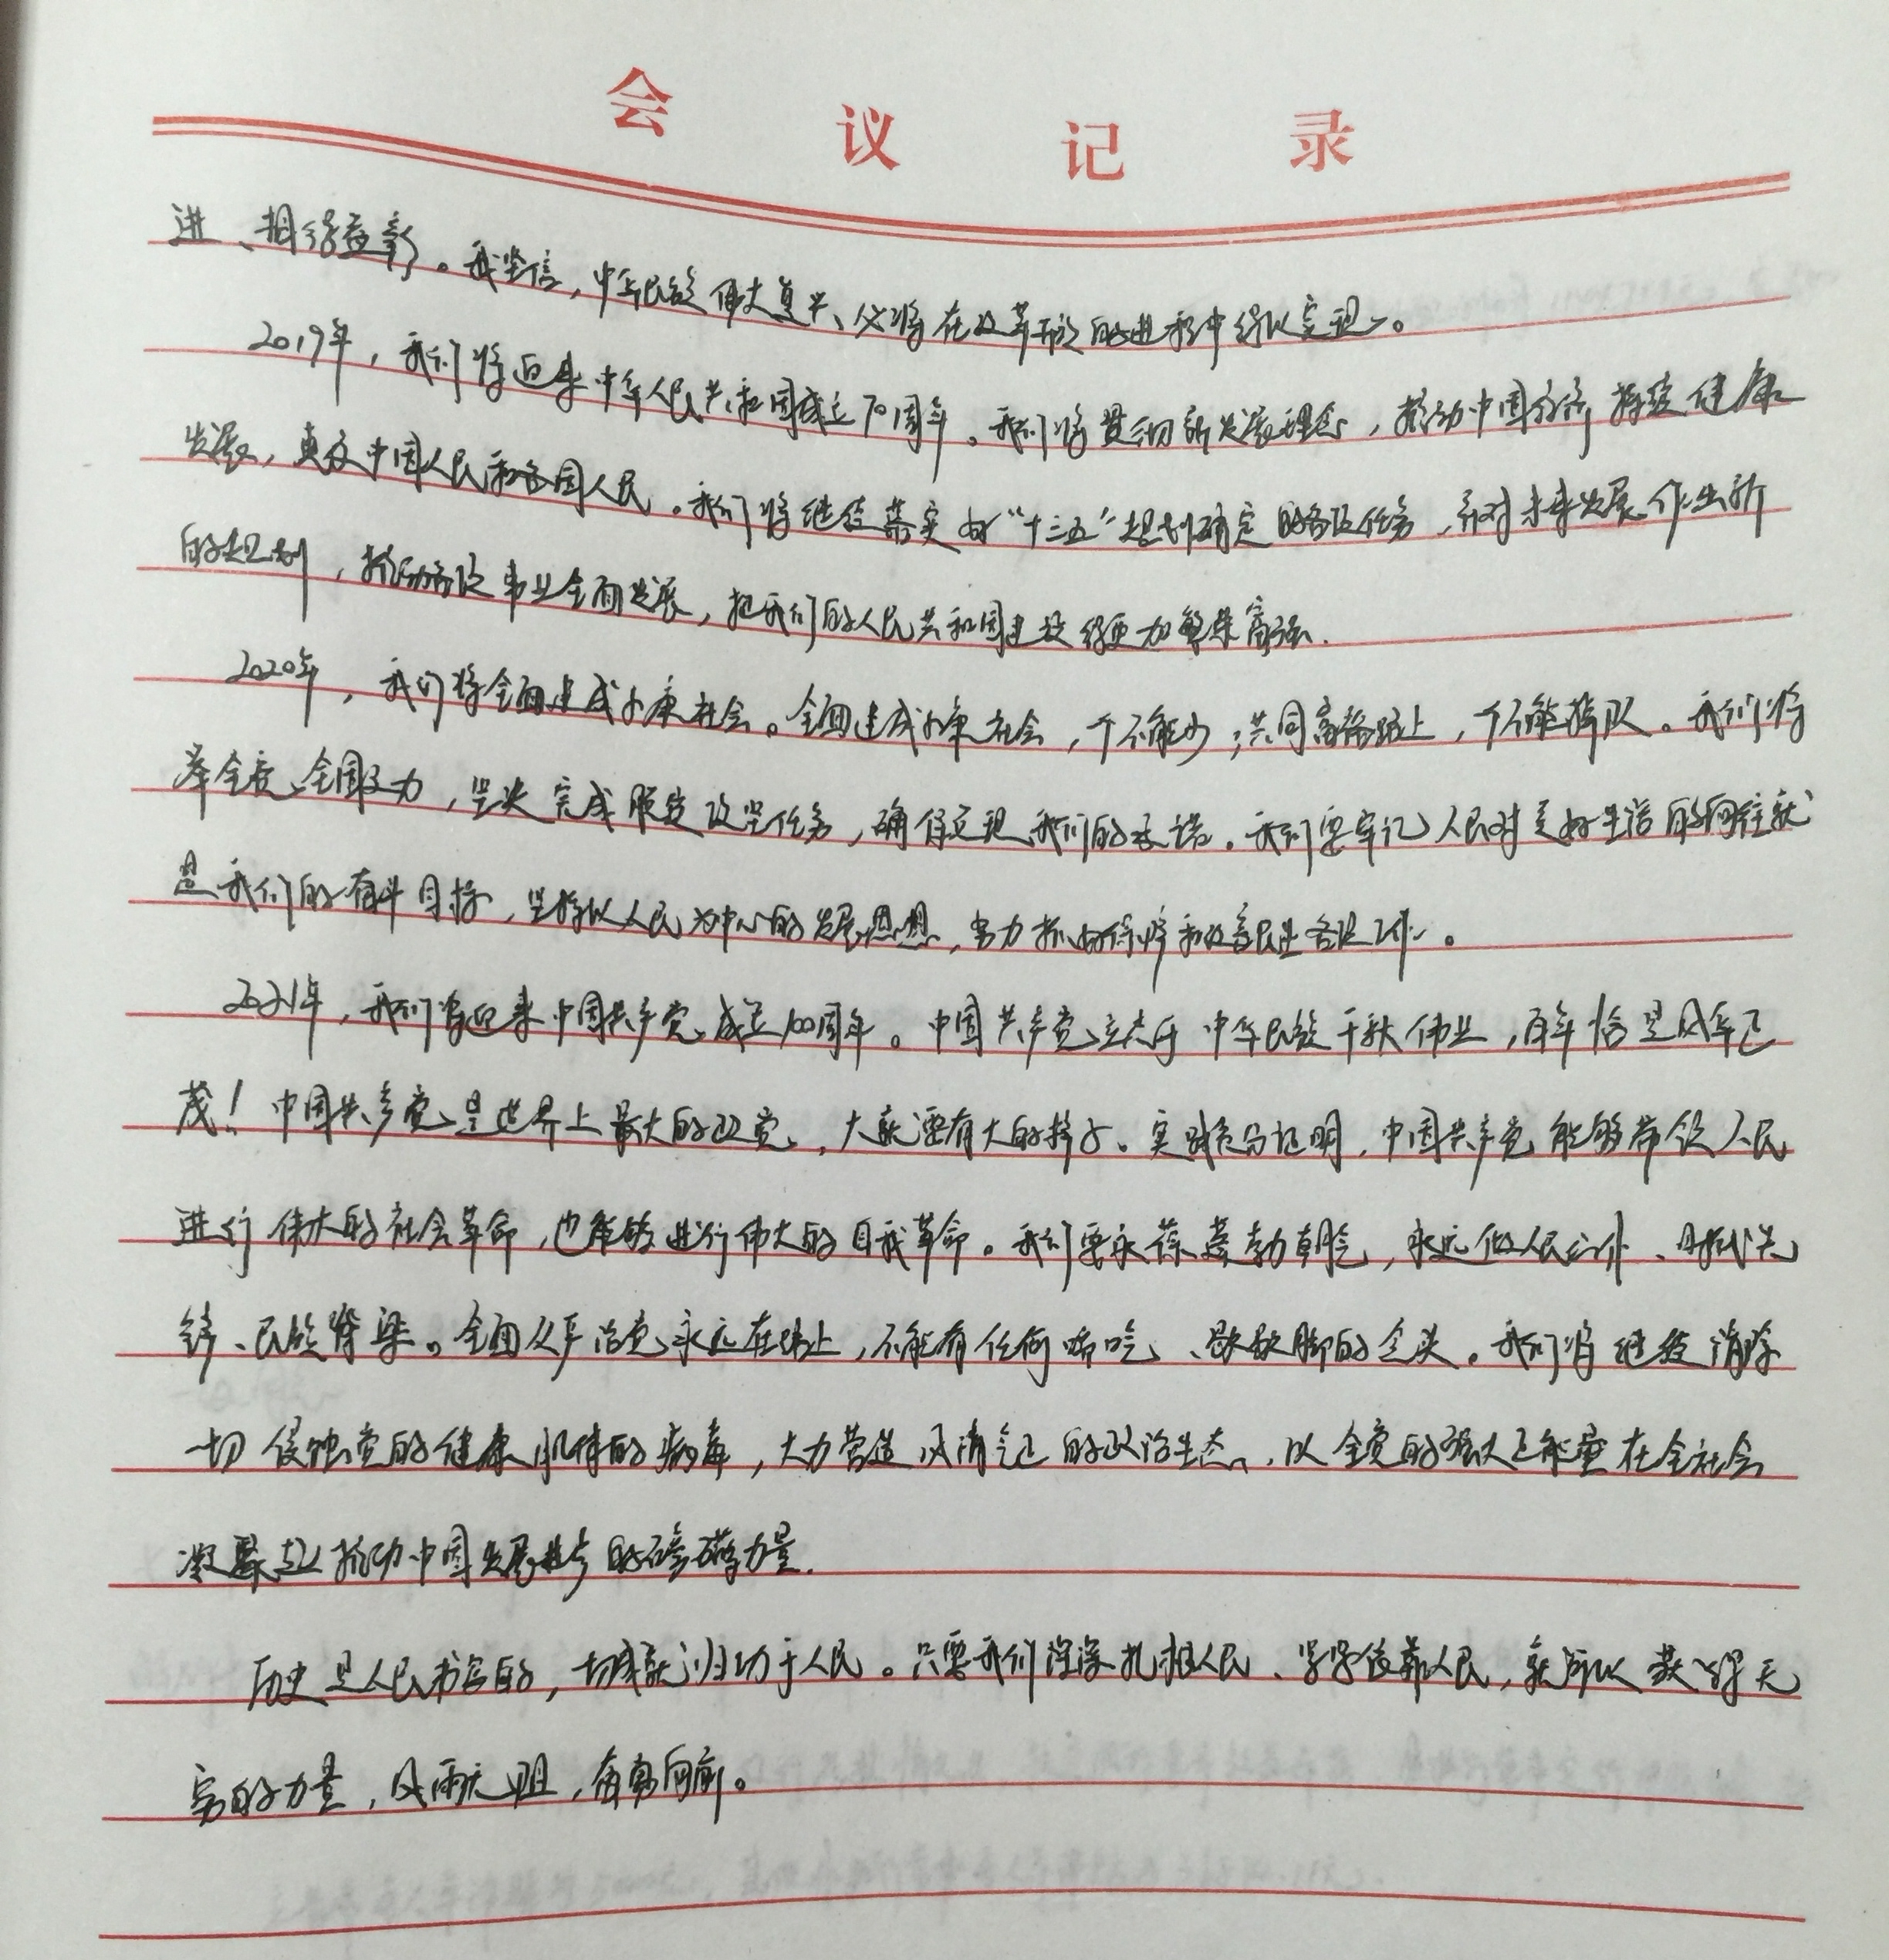 会议记录
进、相得益彰。我坚信,中华民族伟大复兴、必将在改革开放的进程中得以实现。
2019年,我们将迎来中华人民共和国成立70周年。我们将贯彻新发展理念,推动中国经济持续健康
发展,惠及中国人民和各国人民。我们将继续落实好“十三五”规划确定的各项任务,并对未来发展作出新
的规划,推动各项事业全面发展,把我们的人民共和国建设得更加繁荣富强.
2020年,我们将全面建成小康社会。全面建成小康社会,一个不能少;共同富裕路上,一个不能掉队。我们将
举全党、全国之力,坚决完成脱贫攻坚任务,确保兑现我们的承诺。我们要牢记人民对美好生活的向往就
是我们的奋斗目标,坚持以人民为中心的发展思想,努力抓好保障和改善民生各项工作。
2021年,我们将迎来中国共产党成立100周年。中国共产党立志于中华民族千秋伟业,百年恰是风华正
茂!中国共产党是世界上最大的政党,大就要有大的样子。实践充分证明,中国共产党能够带领人民
进行伟大的社会革命,也能够进行伟大的自我革命。我们要永葆蓬勃朝气,永远做人民公仆、时代先
锋、民族脊梁。全面从严治党永远在路上,不能有任何喘口气、歇歇脚的念头。我们将继续清除
一切侵蚀党的健康肌体的病毒,大力营造风清气正的政治生态,以全党的强大正能量在全社会
凝聚起推动中国发展进步的磅礴力量.
历史是人民书写的,一切成就归功于人民。只要我们深深扎根人民、紧紧依靠人民,就可以获得无
穷的力量,风雨无阻,奋勇向前。